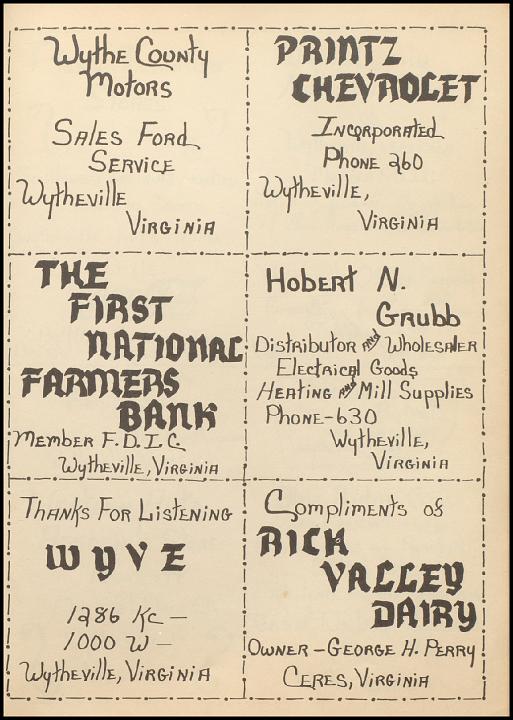 Wythe County
Motors
Sales Ford
Service
Wytheville
Virginia
PRINTZ
CHEVROLET
Incorporated
Phone 260
Wytheville,
Virginia
THE
FIRST
NATIONAL
FARMERS
BANK
Member F.D.I.C
Wytheville, Virginia
Hobert N.
Grubb
Distributor and Wholesaler
Electrical Goods
Heating and Mill Supplies
Phone-630
Wytheville,
Virginia
Thanks For Listening
WYVE
1286 Kc –
1000 W –
Wytheville, Virginia
Compliments of
RICH
VALLEY
DAIRY
Owner – George H. Perry
Ceres, Virginia